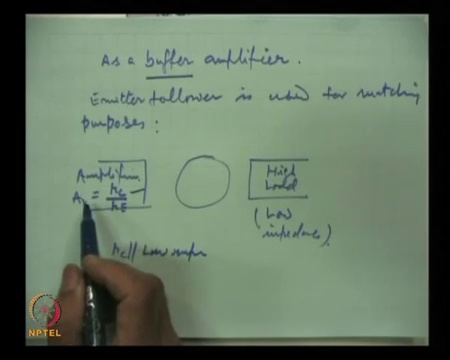 As a buffer amplifier.
Emitter follower is used for matching
purposes:
Amplifier
A = rc
rE
High
Load
(Low
impedance).
rc||
NPTEL